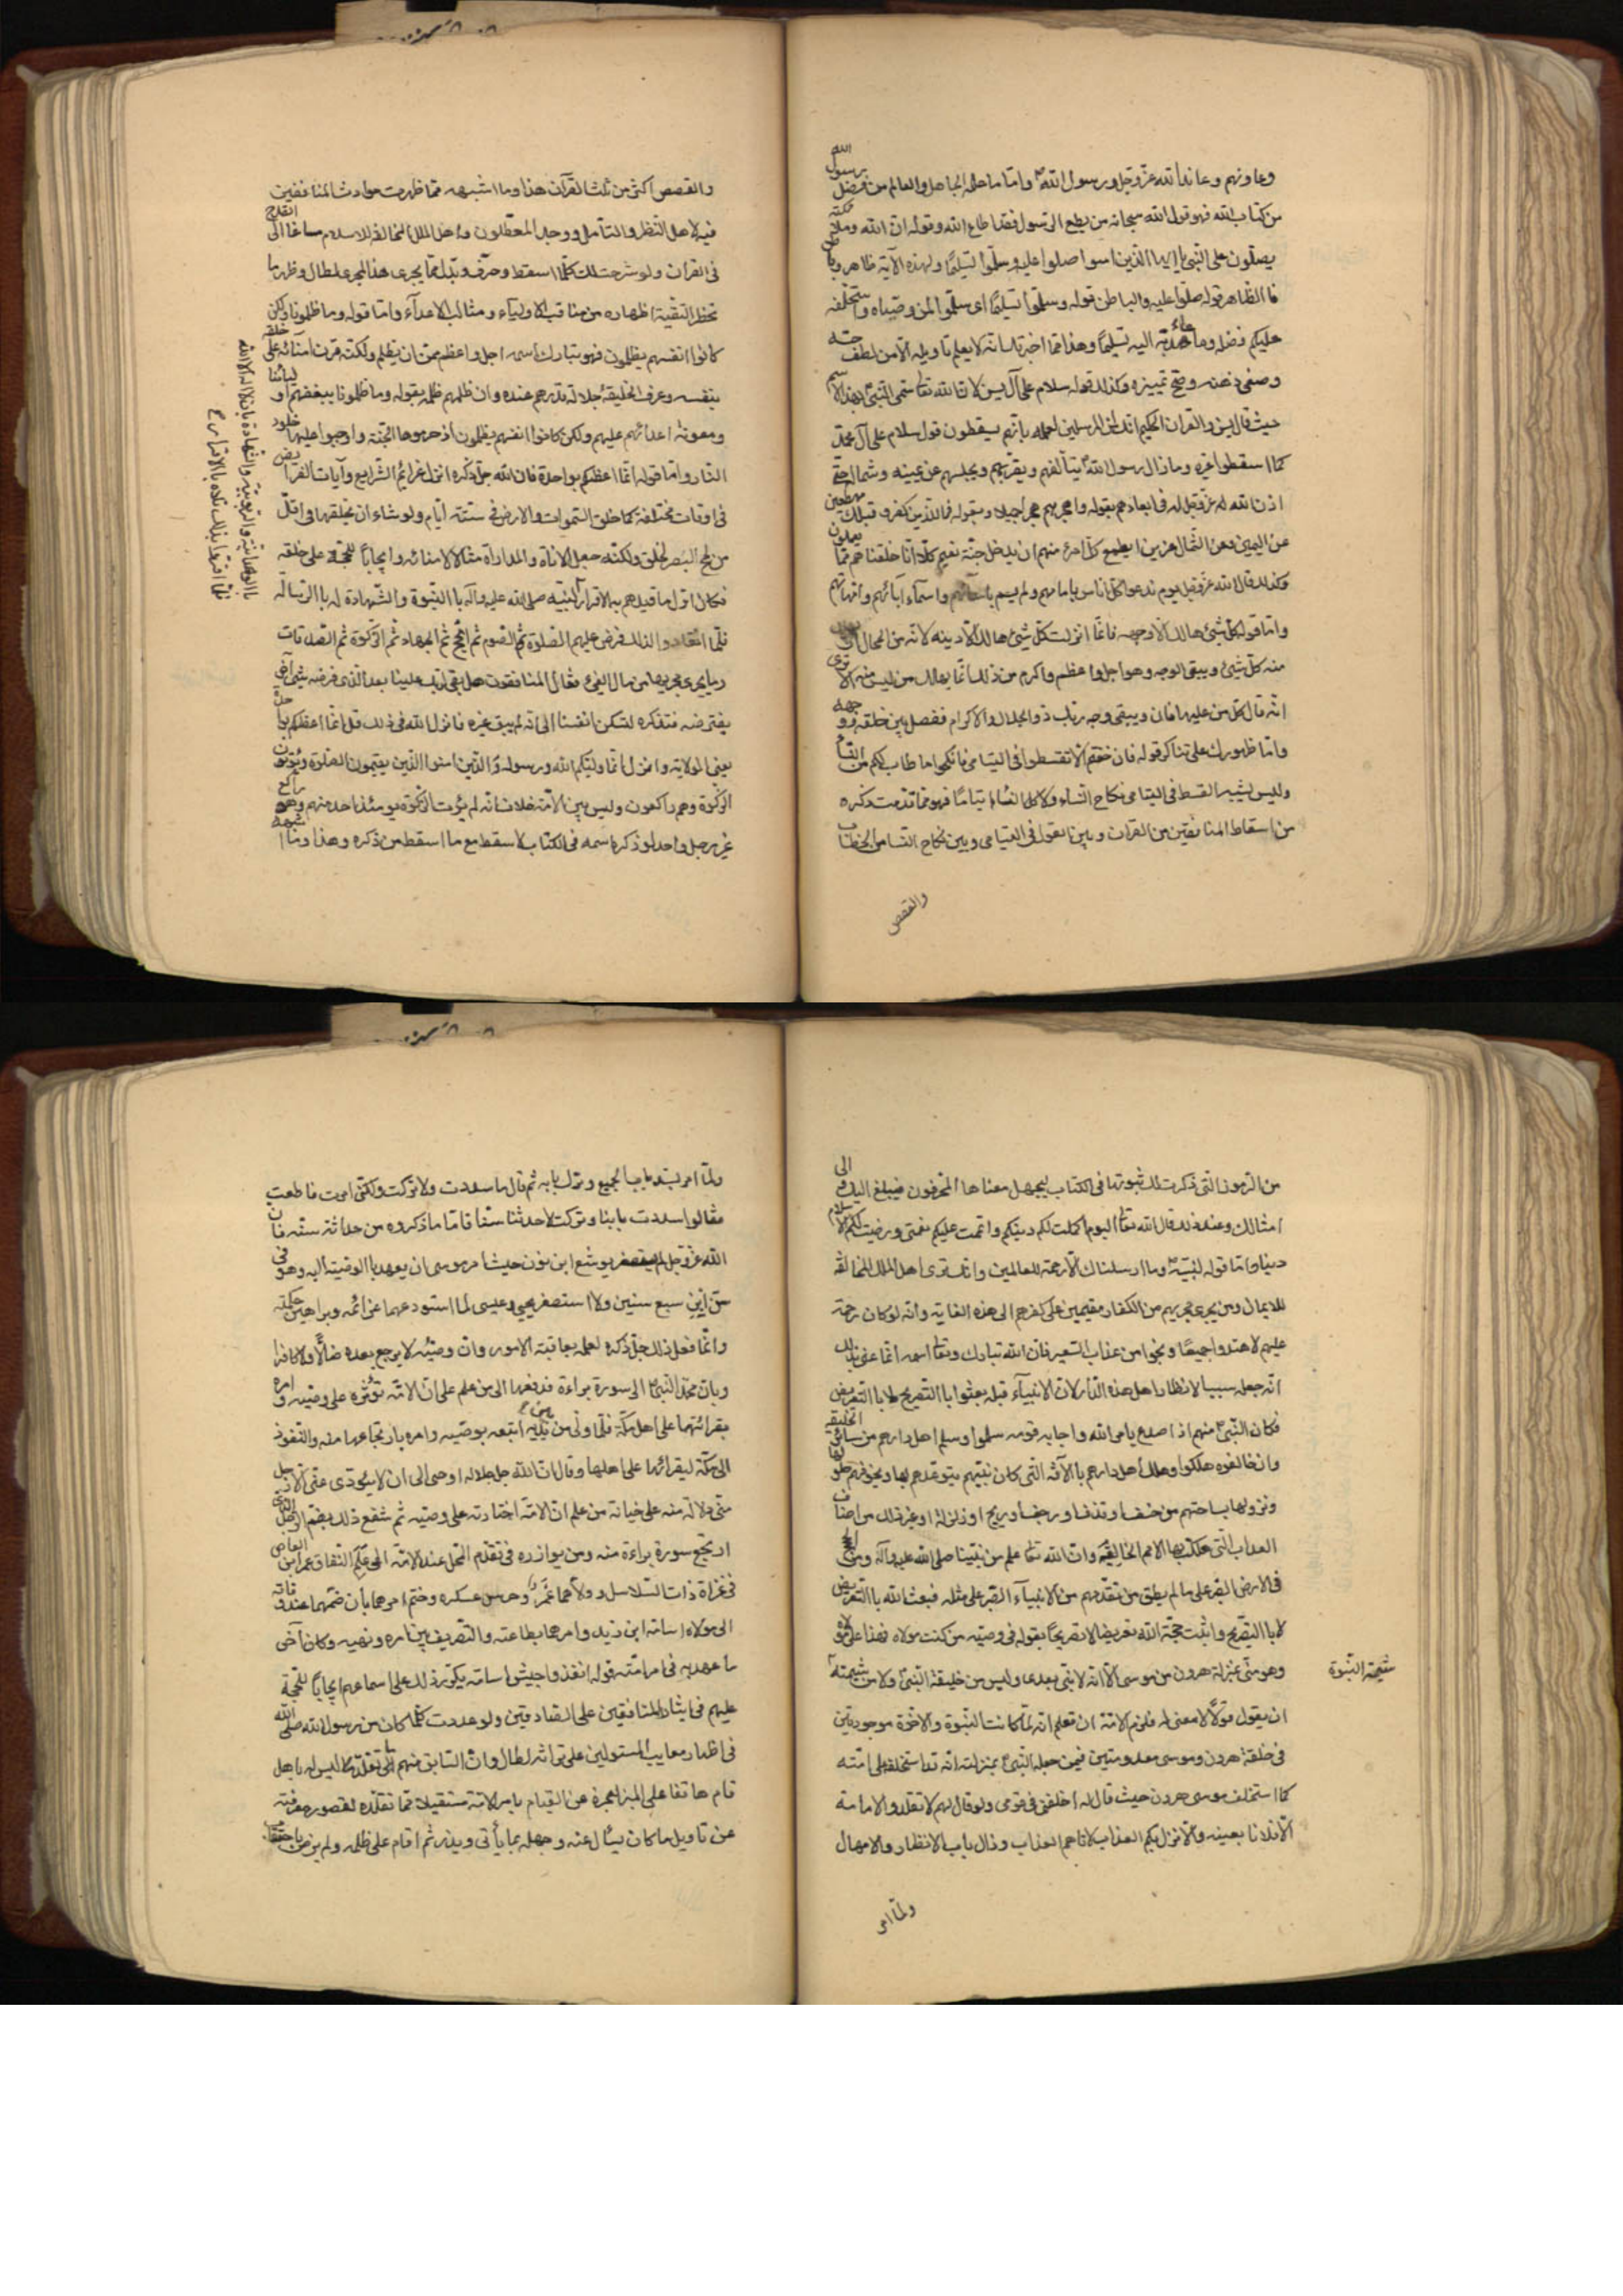 وعاونهم وعاند الله عز وجل ورسول الله واما ما علمه الجاهل والعالم من فضل رسول الله
من كتاب الله فهو قول الله سبحانه من يطع الرسول فقد اطاع الله وقوله ان الله وملائكته
يصلون على النبي يا ايها الذين امنوا صلوا عليه وسلموا تسليما ولهذه الآية ظاهر وباطن
فالظاهر قوله صلوا عليه والباطن قوله وسلموا تسليما اى سلموا لمن وصاه واستخلفه
عليكم فضله وما عهد به اليه تسليما وهذا مما اخبرتك انه لا يعلم تأويله الا من لطف حسه
وصفى ذهنه وصح تميزه وكذلك قوله سلام على آل يس لان الله تعا سمى النبي بهذا الاسم
حيث قال يس والقران الحكيم انك لمن المرسلين لعلمه بانهم يسقطون قول سلام على آل محمد
كما اسقطوا غيره وما زال رسول الله يتألفهم ويقربهم ويجلسهم عن يمينه وشماله حتى
اذن الله له عز وجل فى ابعادهم بقوله واهجرهم هجرا جميلا وبقوله فما للذين كفروا قبلك مهطعين
عن اليمين وعن الشمال عزين ايطمع كل امرئ منهم ان يدخل جنة نعيم كلا انا خلقناهم مما يعلمون
وكذلك قال الله عز وجل يوم ندعوا كل اناس بامامهم ولم يسم باسمائهم واسماء آبائهم وامهاتهم
واما قوله كل شئ هالك الا وجهه فانما انزلت كل شئ هالك الا دينه لانه من المحال ان يهلك
منه كل شئ ويبقى الوجه وهو اجل واعظم واكرم من ذلك انما يهلك من ليس منه الا ترى
انه قال كل من عليها فان ويبقى وجه ربك ذو الجلال والاكرام ففصل بين خلقه ووجهه
واما ظهورك على تناكر قوله فان خفتم الا تقسطوا فى اليتامى فانكحوا ما طاب لكم من النساء
وليس يشبه القسط فى اليتامى نكاح النساء ولا كل النساء ايتاما فهو مما قدمت ذكره
من اسقاط المنافقين من القران وبين القول فى اليتامى وبين نكاح النساء من الخطاب
والقصص
والقصص اكثر من ثلث القرآن هذا وما اشبهه مما ظهرت حوادث المنافقين
فيه لاهل النظر والتأمل ووجد المعطلون واهل الملل المخالفة للاسلام مساغا الى القدح
فى القران ولو شرحت لك كلما اسقط وحرف وبدل مما يجرى هذا المجرى لطال وظهر ما
تحظر التقية اظهاره من مناقب الاولياء ومثالب الاعداء واما قوله وما ظلمونا ولكن
كانوا انفسهم يظلمون فهو تبارك اسمه اجل واعظم من ان يظلم ولكنه قرن امنائه على خلقه
بنفسه وعرف الخليقة جلالة قدرهم عنده وان ظلمهم ظلمه بقوله وما ظلمونا ببغضهم اوليائنا
ومعونة اعدائهم عليهم ولكن كانوا انفسهم يظلمون اذ حرموها الجنة واوجبوا عليها خلود
النار واما قوله انما اعظكم بواحدة فان الله جل ذكره انزل عزائم الشرايع وآيات الفرائض
فى اوقات مختلفة كما خلق السموات والارض فى ستة ايام ولو شاء ان يخلقها فى اقل
من لمح البصر لخلق ولكنه جعل الاناة والمداراة مثالا لامنائه وايجابا للحجة على خلقه
فكان اول ما قيدهم به الاقرار لنبيه صلى الله عليه وآله با النبوة والشهادة له با الرسالة
فلما انقادوا لذلك فرض عليهم الصلوة ثم الصوم ثم الحج ثم الجهاد ثم الزكوة ثم الصدقات
وما يجرى مجريها من مال الفئ فقال المنافقون هل بقى لربك علينا بعد الذى فرضه شئ آخر
يفترضه فتذكره لتسكن انفسنا الى انه لم يبق غيره فانزل الله فى ذلك قل انما اعظكم بواحدة
يعنى الولاية وانزل انما وليكم الله ورسوله والذين امنوا الذين يقيمون الصلوة ويؤتون
الزكوة وهم راكعون وليس بين الامة خلاف انه لم يؤت الزكوة يومئذ احد منهم وهو راكع
غير رجل واحد لو ذكر اسمه فى الكتاب لاسقط مع ما اسقط من ذكره وهذا وما اشبهه
با الوحدانية والربوبية والشهادة بان لا اله الا الله
فلما اقروا بذلك تلاه با الاقرار ح
من الرموز التى ذكرت لك ثبوتها فى الكتاب ليجهل معناها المحرفون فيبلغ اليك والى
امثالك وعند ذلك قال الله تعا اليوم اكملت لكم دينكم واتممت عليكم نعمتى ورضيت لكم الاسلام
دينا واما قوله لنبيه وما ارسلناك الا رحمة للعالمين وانك ترى اهل الملل المخالفة
للايمان ومن يجرى مجريهم من الكفار مقيمين على كفرهم الى هذه الغاية وانه لو كان رحمة
عليهم لاهتدوا جميعا ونجوا من عذاب السعير فان الله تبارك وتعا اسمه انما عنى بذلك
انه جعله سببا لانظار اهل هذه الدار لان الانبياء قبله بعثوا با التصريح لا با التعريض
فكان النبي منهم اذا صدع بامر الله واجابه قومه سلموا وسلم اهل دارهم من سائر الخليقة
وان خالفوه هلكوا وهلك اهل دارهم با الآفة التى كان نبيهم يتوعدهم بها ويخوفهم حلولها
ونزولها بساحتهم من خسف او قذف او رجف او ريح او زلزلة او غير ذلك من اصناف
العذاب التى هلكت بها الامم الخالية وان الله تعا علم من نبينا صلى الله عليه وآله ومن الحجج
فى الارض الصبر على ما لم يطق من تقدمهم من الانبياء الصبر على مثله فبعث الله با التعريض
لا با التصريح واثبت حجة الله تعريضا لا تصريحا بقوله فى وصيه من كنت مولاه فهذا على مولاه
وهو منى بمنزلة هرون من موسى الا انه لا نبي بعدى وليس من خليقة النبي ولا من شيمته
شيمة النبوة
ان يقول قولا لا معنى له فلزم الامة ان تعلم انه لما كانت النبوة والاخوة موجودتين
فى خلقة هرون وموسى معدومتين فيمن جعله النبي بمنزلته انه قد استخلفه على امته
كما استخلف موسى هرون حيث قال له اخلفنى فى قومى ولو قال لهم لا تقلدوا الامامة
الا فلانا بعينه والا نزل بكم العذاب لاتاهم العذاب وزال باب الانظار والامهال
ولما امر
ولما امر بسد باب الجميع وترك بابه ثم قال ما سددت ولا تركت ولكنى امرت فاطعت
فقالوا سددت بابنا وتركت لاحدثنا سنا فاما ما ذكروه من حداثة سنه فان
الله عز وجل لم يستصغر يوشع ابن نون حيث امر موسى ان يعهد با الوصية اليه وهو فى
سن ابن سبع سنين ولا استصغر يحيى وعيسى لما استودعهما عزائمه وبراهين حكمته
وانما فعل ذلك جل ذكره لعلمه بعاقبة الامور وان وصيه لا يرجع بعده ضالا ولا كافرا
وبان محمد النبي الى سورة براءة فدفعها الى من علم على ان الامة تؤثره على وصيه وامره
بقرائتها على اهل مكة فلما ولى من بين يديه اتبعه بوصيه وامره بارتجاعها منه والنفوذ
الى مكة ليقرائها على اهلها وقال ان الله جل جلاله اوحى الى ان لا يؤدى عنى الا رجل
منى دلالة منه على خيانة من علم ان الامة اختارته على وصيه ثم شفع ذلك بضم الرجل الذى
ارتجع سورة براءة منه ومن يوازره فى تقدم المحل عند الامة الى علم النفاق عمرو ابن العاص
فى غزاة ذات السلاسل وولاهما عمرو حرس عسكره وختم امرهما بان ضمهما عند وفاته
الى مولاه اسامة ابن زيد وامرهما بطاعته والتصريف بين امره ونهيه وكان آخر
ما عهد به فى امر امته قوله انفذوا جيش اسامة يكرر ذلك على اسماعهم ايجابا للحجة
عليهم فى ايثار المنافقين على الصادقين ولو عددت كلما كان من رسول الله صلى الله
فى اظهار معايب المستولين على تراثه لطال وان السابق منهم الى تقلد ما ليس له باهل
قام هاتفا على المنبر لعجزه عن القيام بامر الامة مستقيلا مما تقلده لقصور معرفته
عن تاويل ما كان يسئل عنه وجهله بما يأتى ويذر ثم اقام على ظلمه ولم يرض باحتقاب